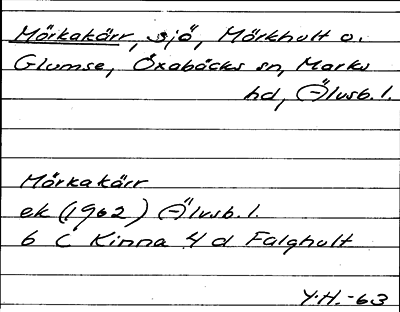 Mörkakärr, sjö, Mörkhult o.
Glumse, Öxabäcks sn, Marks
hd, Älvsb. l.
Mörkakärr
ek (1962) Älvsb. l.
6 C Kinna 4 d Falghult
Y.H.-63